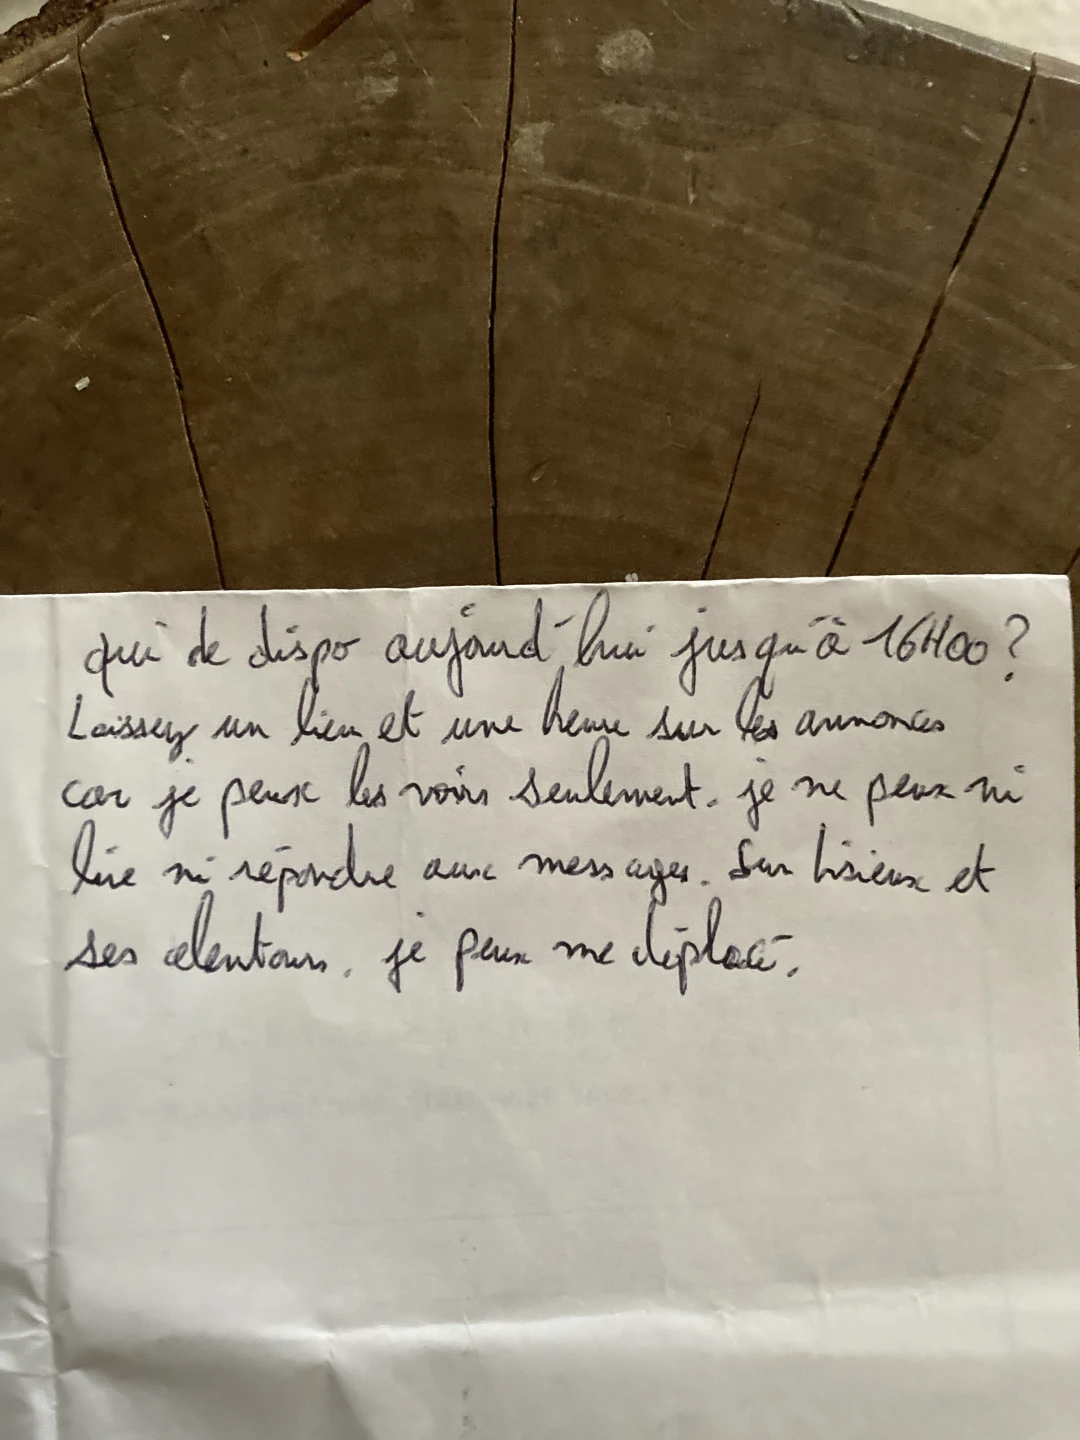 qui de dispo aujourd'hui jusqu'à 16H00 ?
Laissez un lieu et une heure sur les annonces
car je peux les voirs seulement. je ne peux ni
lire ni répondre aux messages. Sur lisieux et
ses alentours. je peux me déplacé.